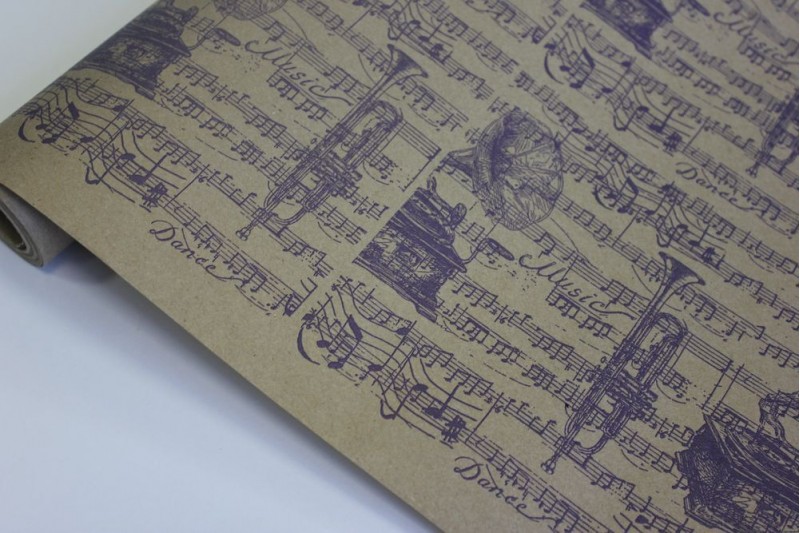 Music
Music
Dance
Music
Dance
Dance